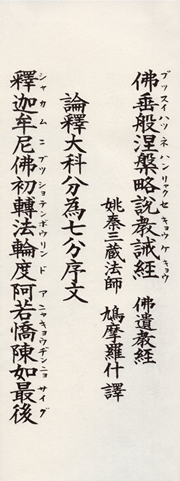 佛垂般涅槃略説教誡経　佛遺教経
ブッスイハツネハンリャクセキョウケキョウ
姚秦三蔵法師　鳩摩羅什譯
論釋大科分為七分序文
釋迦牟尼佛初轉法輪度阿若憍陳如最後
シャカムニブツショテンボウリンドアニャキョウヂンニョサイグ